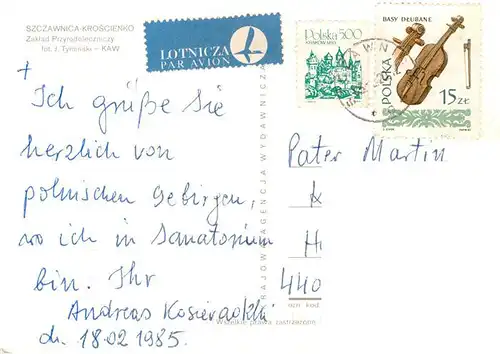 SZCZAWNICA-KROŚCIENKO
Zakład Przyrodoleczniczy
fot. J. Tymiński — KAW
LOTNICZA
PAR AVION
Polska 5.00
BASY DŁUBANE
POLSKA
15 ZŁ
+
Ich grüße Sie
herzlich von
polnischen Gebirgen,
wo ich in Sanatorium
bin. Ihr
Andreas
dn. 18.02 1985.
KRAJOWA AGENCJA WYDAWNICZA
Pater Martin
K
H
440
kod
Wszelkie prawa zastrzeżone